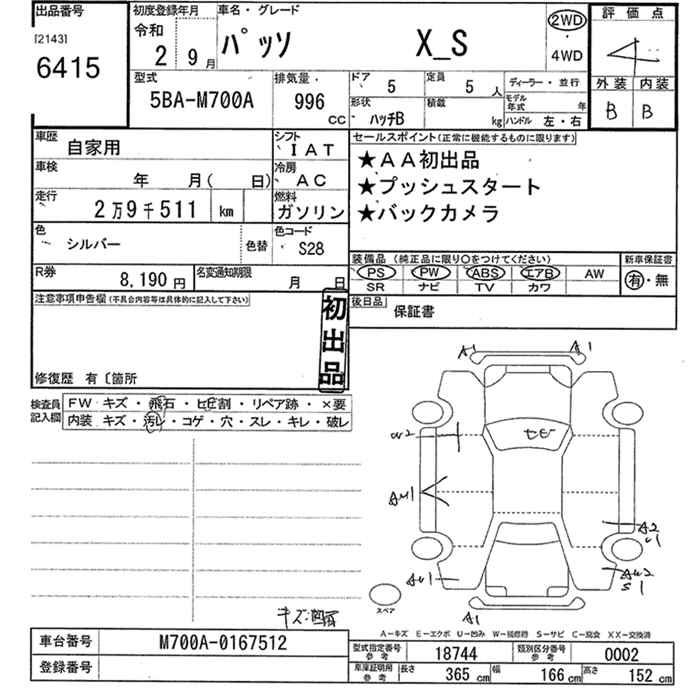 出品番号
[2143]
6415
初度登録年月
令和
2 9月
車名・グレード
パッソ X_S
2WD
・
4WD
評価点
4
外装 内装
B B
型式
5BA-M700A
排気量・
996
CC
ドア
5
定員
5人
形状
ハッチB
積載
kg
ディーラー・並行
モデル年式 年
ハンドル 左・右
車歴
自家用
シフト
IAT
車検
年 月( 日)
冷房
AC
走行
2万9千511 km
燃料
ガソリン
色
シルバー
色替
色コード
S28
R券
8,190円
名変通知期限
月 日
セールスポイント(正常に機能するものに限ります)
★AA初出品
★プッシュスタート
★バックカメラ
装備品(純正品に限り○をつけてください)
新車保証書
PS PW ABS エアB AW
有・無
SR ナビ TV カワ
後日品
保証書
注意事項申告欄(不具合内容等は具体的に記入して下さい)
初出品
修復歴 有〔箇所
検査員記入欄
FW キズ・飛石・ヒビ割・リペア跡・×要
内装 キズ・汚レ・コゲ・穴・スレ・キレ・破レ
A1 A1
ヒビ
W2
AU1
A2
U1
AU1
AW2
S1
スペア
A1
キズ凹有
A-キズ E-エクボ U-凹み W-補修跡 S-サビ C-腐食 XX-交換済
車台番号
M700A-0167512
登録番号
型式指定番号
参考
18744
類別区分番号
参考
0002
車庫証明用
参考
長さ
365cm
幅
166cm
高さ
152cm